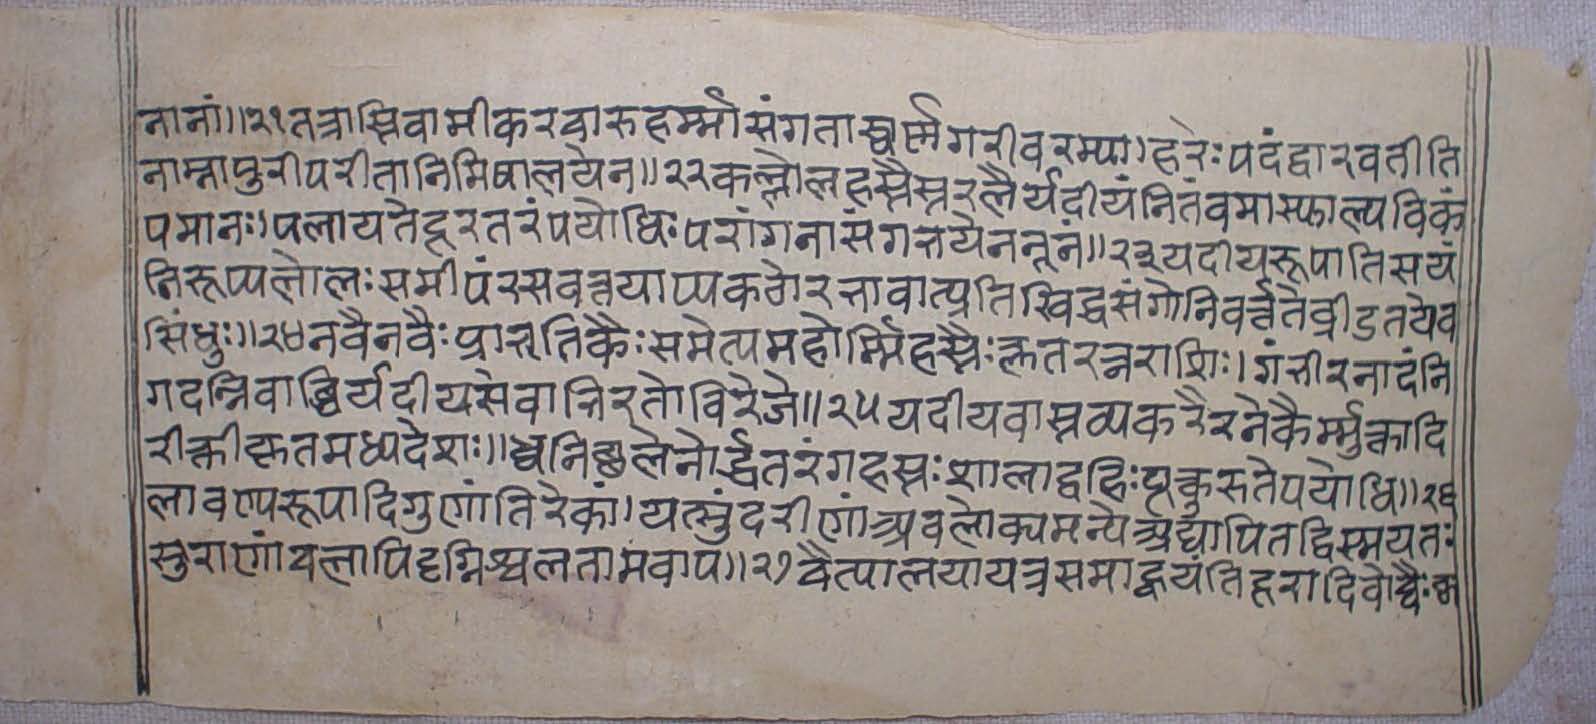 नानां।।२१तत्रास्निवामीकरवारुहर्म्मासंगतास्वर्गगरीवरम्या।हरेःपदंद्वारवतीति
नाम्नापुरीपरीतानिमिषालयेन।।२२कल्लोलहस्तैस्तरलैर्यदीयंनितंवमास्फाल्यविकं
पमानः।पलायतेदूरतरंपयोधिःपरांगनासंगभयेननूनं।।२३यदीयरूपातिसयं
निरूप्यलोलःसमीपंरसवत्तयाप्यकठोरभावात्प्रतिखिद्धसंगोनिवर्त्ततेव्रीडतयेव
सिंधुः।।२४नवैनवैःप्राभृतिकैःसमेत्यमहोर्म्मिहस्तैःकृतरत्नराशिः।गंभीरनादंनि
गदन्निवाब्धिर्यदीयसेवानिरतोविरेजे।।२५यदीयवास्तव्यकरैरनेकैर्म्मुक्तादि
रीक्तीकृतमध्यदेशः।।ध्वनिछलेनोर्द्धतरंगहस्तःशालाद्वहिःपूत्कुरुतेपयोधि।।२६
लावण्यरूपादिगुणांतिरेकां।यत्सुंदरीणांअवलोक्यमन्येअद्यापितद्विस्मयतः
सुराणांवलापिदृग्निश्चलतामवाप।।२७चैत्यालयायत्रसमाह्वयंतिहूरादिवोच्चैःक